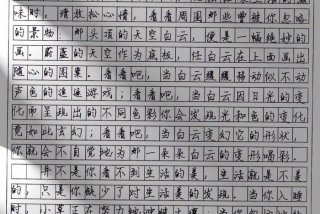 味时，请放松心情，看看周围那些曾被你忽略
的景物。那头顶的天空白云，便是一幅绝妙的
画。蔚蓝的天空作为底板，任白云在上面画出
随心的图案。看看吧，当白云缓缓移动似不动
声色的追逐游戏；看看吧，当白云因日光的变
化而呈现出的不同色彩你会发现光和色的变化
竟如此玄幻；看看吧，当白云变幻它的形状，
你就会不自觉地为那一朵朵白云的变形喝彩。
并不是你看不到生活的美，生活就是不美
的，只是你缺少了对生活美的发现。当你入睡
时，小草正在努力地